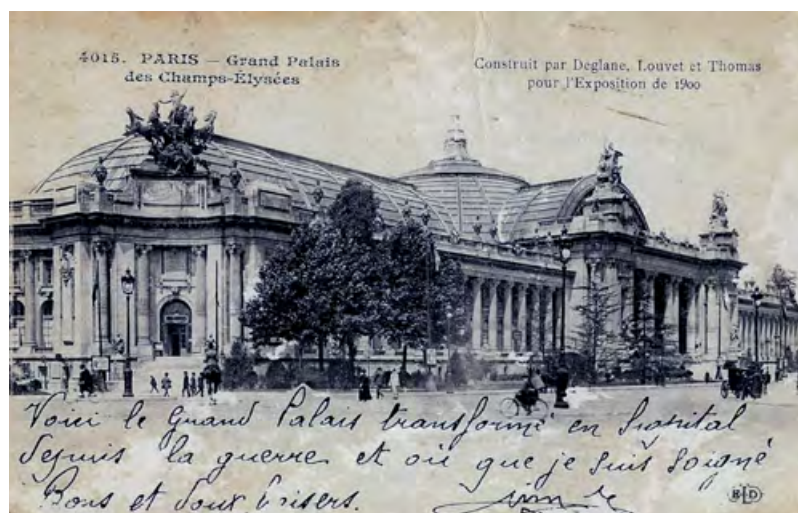 4015. PARIS — Grand Palais
des Champs-Élysées
Construit par Deglane, Louvet et Thomas
pour l'Exposition de 1900
Voici le Grand Palais transformé en hopital
depuis la guerre et où que je suis soigné
Bons et doux baisers.